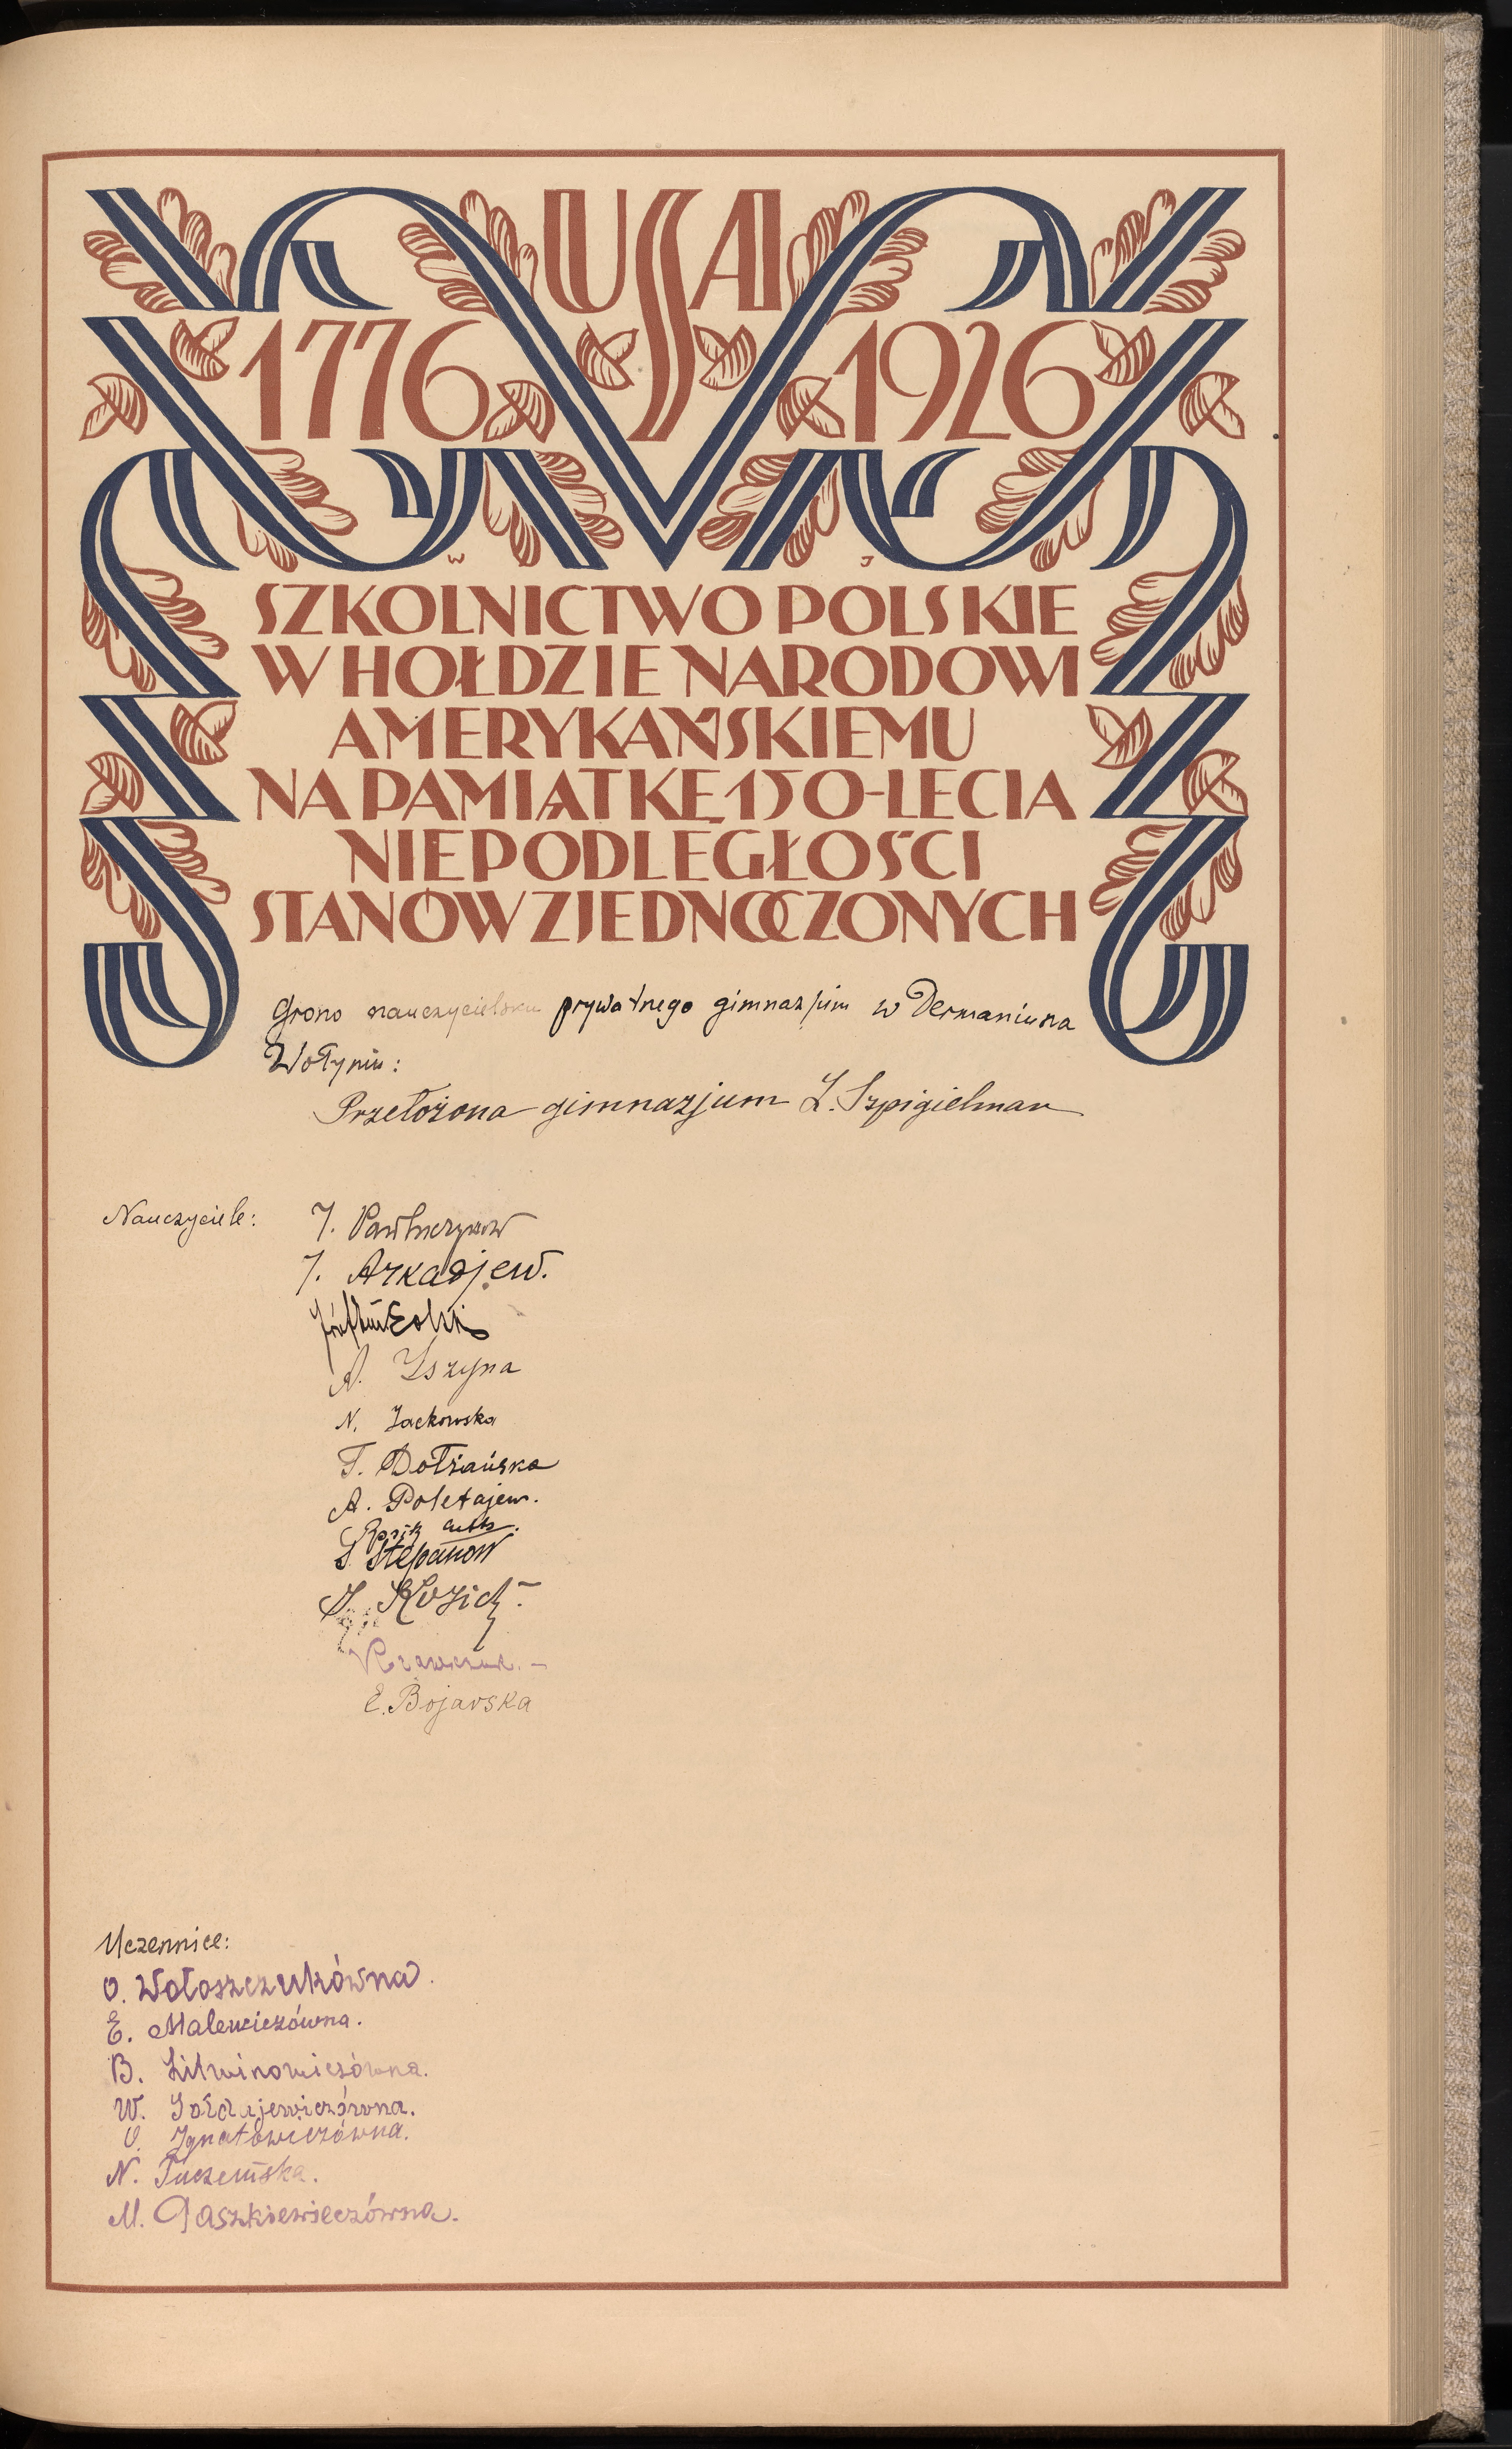 USA
1776 1926
W J
SZKOLNICTWO POLSKIE
W HOŁDZIE NARODOWI
AMERYKAŃSKIEMU
NA PAMIĄTKĘ 150-LECIA
NIEPODLEGŁOŚCI
STANÓW ZJEDNOCZONYCH
Grono nauczycielskie prywatnego gimnazjum w Dermaniu na
Wołyniu:
Przełożona gimnazjum L. Szpigielman
Nauczyciele: J.
J. Arkadjew.
A.
N. Jackowska
T. Dołżańska
A. Poletajew.
S. Stepanow
Kozicz
Krawczuk. –
E. Bojarska
Uczennice:
O. Wołoszczukówna.
E. Malewiczówna.
B. Litwinowiczówna.
W.
O. Ignatowiczówna.
N. Tuczemska.
M. Paszkiewiczówna.